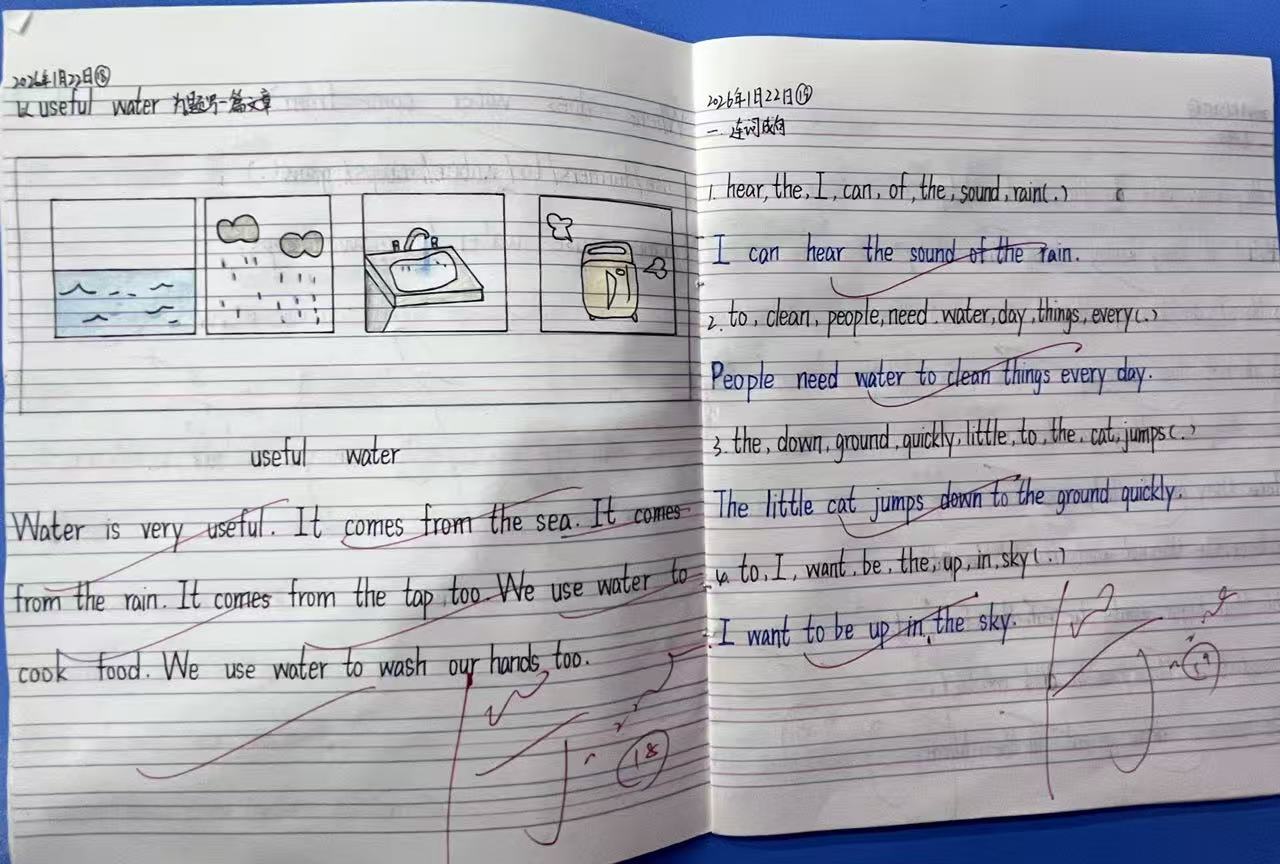 2026年1月22日⑱
以 useful water 为题写一篇文章
useful water
Water is very useful. It comes from the sea. It comes
from the rain. It comes from the tap too. We use water to
cook food. We use water to wash our hands too.
18
2026年1月22日⑲
一. 连词成句
1. hear, the, I, can, of, the, sound, rain(.)
I can hear the sound of the rain.
2. to, clean, people, need, water, day, things, every(.)
People need water to clean things every day.
3. the, down, ground, quickly, little, to, the, cat, jumps(.)
The little cat jumps down to the ground quickly.
4. to, I, want, be, the, up, in, sky(.)
I want to be up in the sky.
19